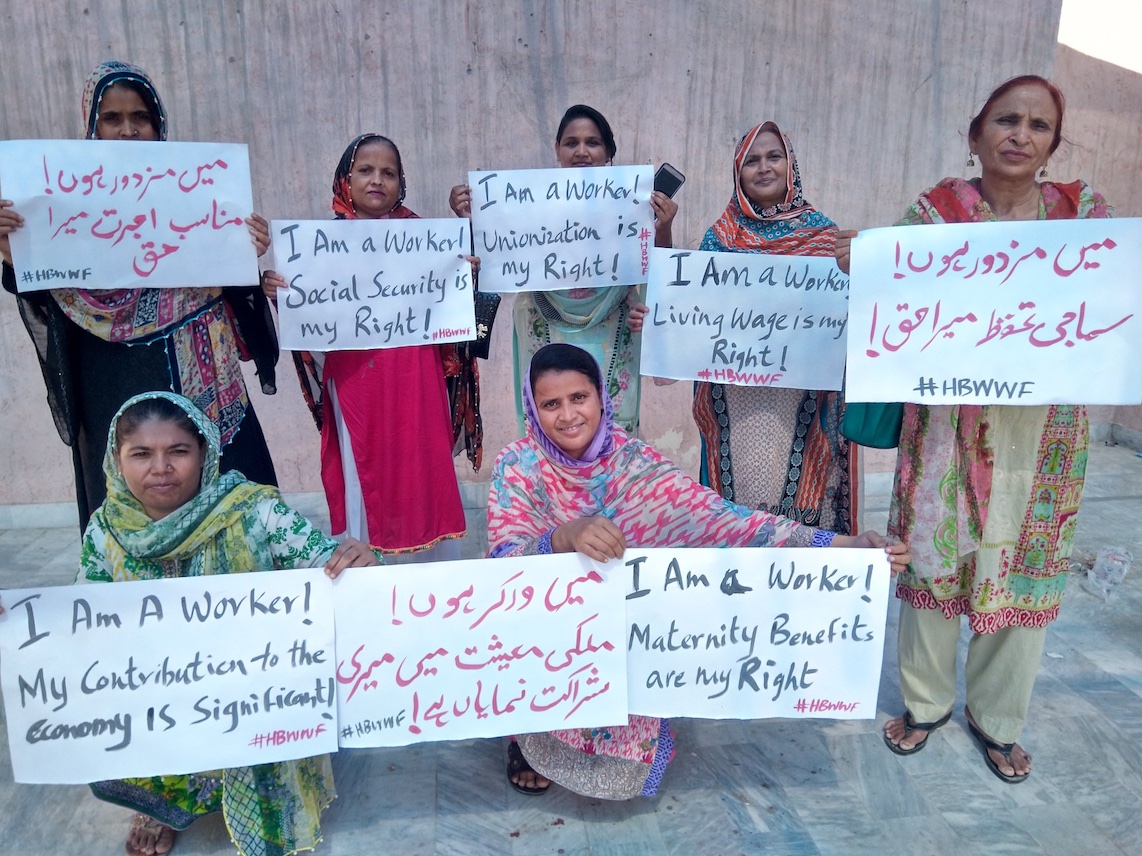 میں مزدور ہوں!
مناسب اجرت میرا
حق
#HBWWF
I Am a Worker!
Social Security is
my Right!
#HBWWF
I Am a Worker!
Unionization is
my Right!
#HBWWF
I Am a Worker
Living Wage is my
Right!
#HBWWF
میں مزدور ہوں!
سماجی تحفظ میرا حق!
#HBWWF
I Am A Worker!
My Contribution to the
Economy Is Significant!
#HBWWF
میں ورکر ہوں!
ملکی معیشت میں میری
شراکت نمایاں ہے!
#HBWWF
I Am a Worker!
Maternity Benefits
are my Right
#HBWWF